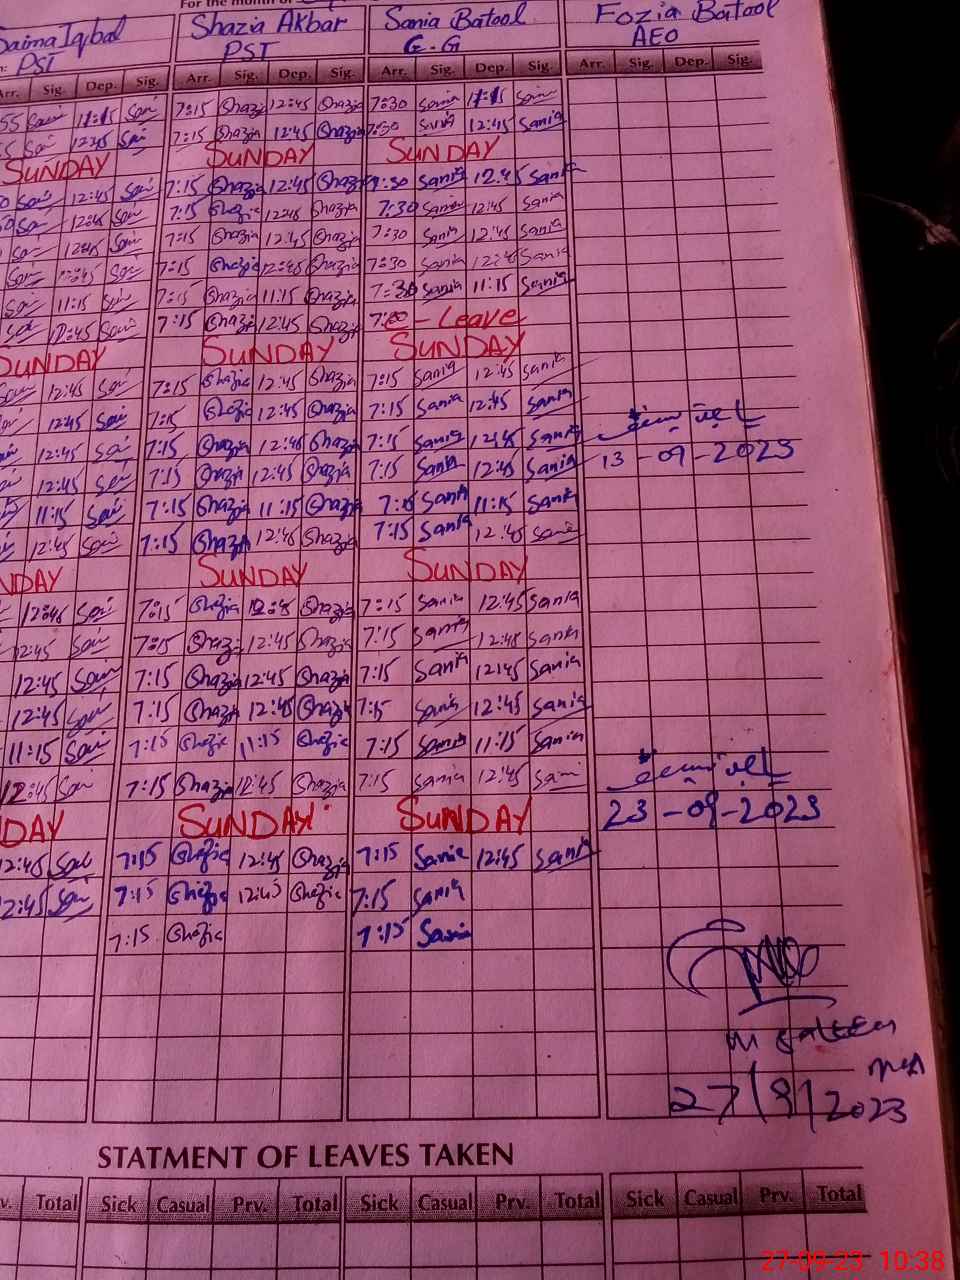 For the month of
Saima Iqbal Shazia Akbar Sania Batool Fozia Batool
PST PST G.G AEO
Arr. Sig. Dep. Sig. Arr. Sig. Dep. Sig. Arr. Sig. Dep. Sig. Arr. Sig. Dep. Sig.
55 Sai 11:15 Sai 7:15 Shazia 12:45 Shazia 7:30 Sania 11:15 Sania
5 Sai 12:45 Sai 7:15 Shazia 12:45 Shazia 7:30 Sania 12:45 Sania
SUNDAY SUNDAY SUNDAY
Sai 12:45 Sai 7:15 Shazia 12:45 Shazia 7:30 Sania 12.45 Sania
Sai 12:45 Sai 7:15 Shazia 12:45 Shazia 7:30 Sania 12:45 Sania
Sai 12:45 Sai 7:15 Shazia 12:45 Shazia 7:30 Sania 12:45 Sania
Sai 12:45 Sai 7:15 Shazia 12:45 Shazia 7:30 Sania 12:45 Sania
Sai 11:15 Sai 7:15 Shazia 11:15 Shazia 7:30 Sania 11:15 Sania
Sai 12:45 Sai 7:15 Shazia 12:45 Shazia - Leave
SUNDAY SUNDAY SUNDAY
Sai 12:45 Sai 7:15 Shazia 12:45 Shazia 7:15 Sania 12:45 Sania
12:45 Sai 7:15 Shazia 12:45 Shazia 7:15 Sania 12:45 Sania
12:45 Sai 7:15 Shazia 12:45 Shazia 7:15 Sania 12:45 Sania
12:45 Sai 7:15 Shazia 12:45 Shazia 7:15 Sania 12:45 Sania 13-09-2023
11:15 Sai 7:15 Shazia 11:15 Shazia 7:15 Sania 11:15 Sania
12:45 Sai 7:15 Shazia 12:45 Shazia 7:15 Sania 12:45 Sania
NDAY SUNDAY SUNDAY
12:45 Sai 7:15 Shazia 12:45 Shazia 7:15 Sania 12:45 Sania
12:45 Sai 7:15 Shazia 12:45 Shazia 7:15 Sania 12:45 Sania
12:45 Sai 7:15 Shazia 12:45 Shazia 7:15 Sania 12:45 Sania
12:45 Sai 7:15 Shazia 12:45 Shazia 7:15 Sania 12:45 Sania
11:15 Sai 7:15 Shazia 11:15 Shazia 7:15 Sania 11:15 Sania
12:45 Sai 7:15 Shazia 12:45 Shazia 7:15 Sania 12:45 Sania
DAY SUNDAY SUNDAY 23-09-2023
12:45 Sai 7:15 Shazia 12:45 Shazia 7:15 Sania 12:45 Sania
2:45 Sai 7:15 Shazia 12:45 Shazia 7:15 Sania
7:15 Shazia 7:15 Sania
M Saleem
MEA
27/9/2023
STATMENT OF LEAVES TAKEN
v. Total Sick Casual Prv. Total Sick Casual Prv. Total Sick Casual Prv. Total
27-09-23 10:38